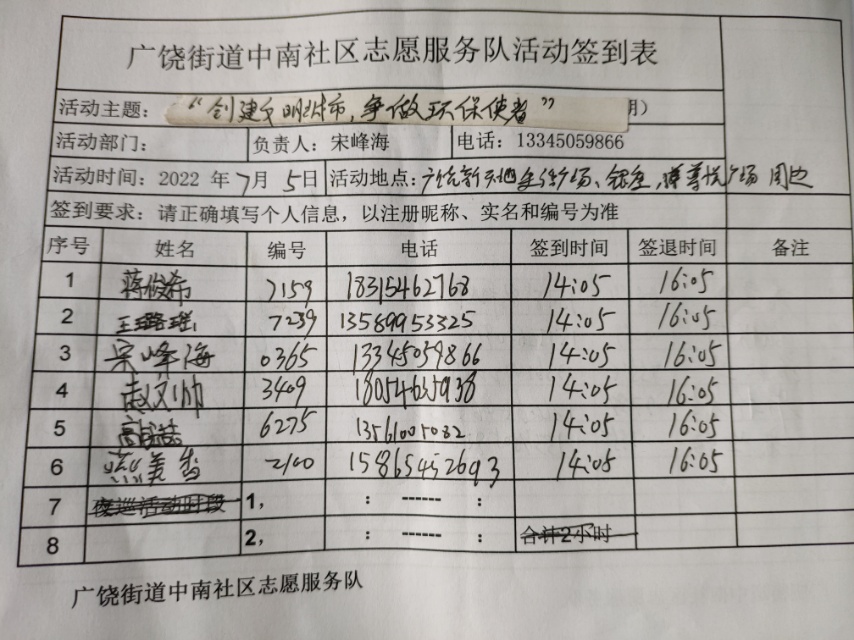 广饶街道中南社区志愿服务队活动签到表
活动主题: “创建文明城市,争做环保使者” 期)
活动部门: 负责人: 宋峰海 电话: 13345059866
活动时间: 2022 年 7月 5日 活动地点: 广饶新天地 广场、银座, 广场 周边
签到要求: 请正确填写个人信息, 以注册昵称、实名和编号为准
序号 姓名 编号 电话 签到时间 签退时间 备注
1 蒋俊希 7159 18315462768 14:05 16:05
2 王璐瑶 7239 13589953325 14:05 16:05
3 宋峰海 0365 13345059866 14:05 16:05
4 赵文帅 3409 18054665938 14:05 16:05
5 6275 13561005082 14:05 16:05
6 燕美香 2100 15865452693 14:05 16:05
7 夜巡活动时段 1, : ------ :
8 2, : ------ : 合计2小时
广饶街道中南社区志愿服务队